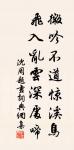 微吟不道惊溪鸟
飞入乱云深处啼
沈周题画词典网集